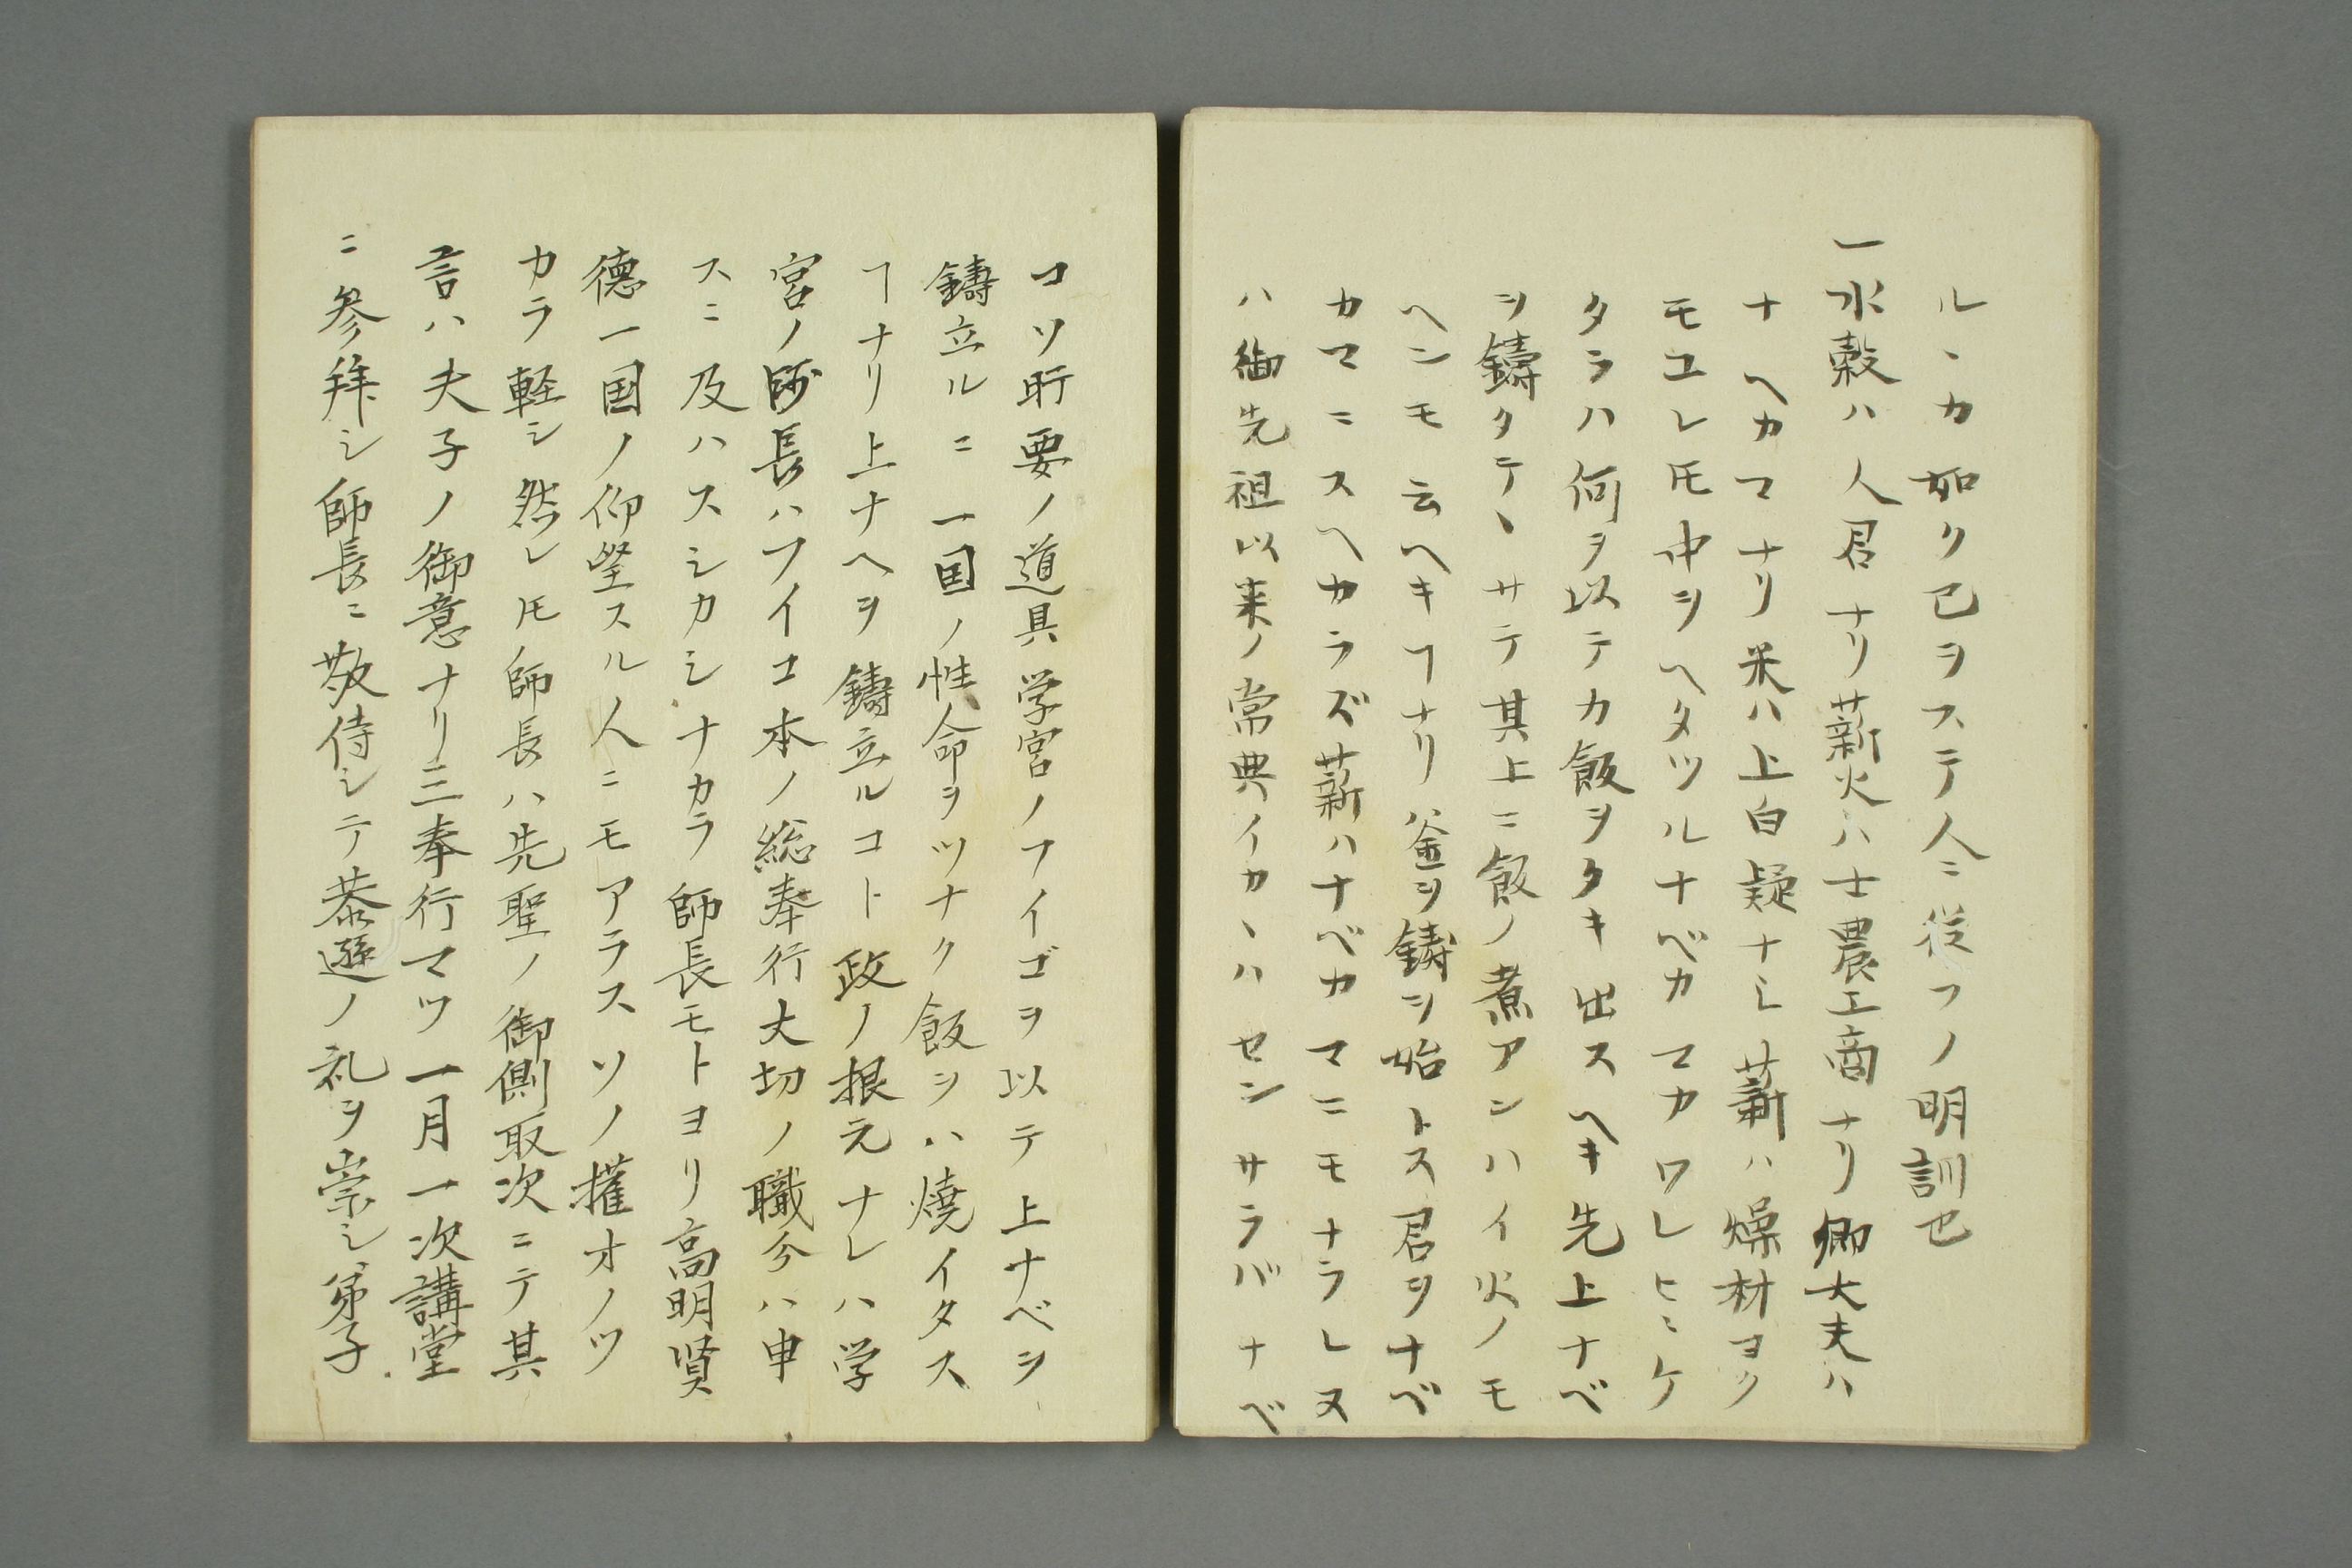 ルヽカ如ク已ヲステ人ニ従フノ明訓也
一水穀ハ人君ナリ薪火ハ士農工商ナリ卿大夫ハ
ナヘカマナリ米ハ上白疑ナシ薪ハ燥材ヨク
モユレ𪜈中ヲヘタツルナベカマカワレヒヾケ
タラハ何ヲ以テカ飯ヲタキ出スヘキ先上ナベ
ヲ鋳タテヽサテ其上ニ飯ノ煮アンハイ火ノモ
ヘンモ云ヘキヿナリ釜ヲ鋳ヲ始トス君ヲナベ
カマニスヘカラズ薪ハナベカマニモナラレヌ
ハ御先祖以来ノ常典イカヽハセンサラバナベ
コソ肝要ノ道具学宮ノフイゴヲ以テ上ナベヲ
鋳立ルニ一国ノ性命ヲツナク飯ヲハ焼イタス
ヿナリ上ナヘヲ鋳立ルコト政ノ根元ナレハ学
宮ノ師長ハフイコ本ノ総奉行大切ノ職分ハ申
スニ及ハスシカシナカラ師長モトヨリ高明賢
徳一国ノ仰望スル人ニモアラスソノ権オノツ
カラ軽シ然レ𪜈師長ハ先聖ノ御側取次ニテ其
言ハ夫子ノ御意ナリ三奉行マツ一月一次講堂
ニ参拜シ師長ニ敬侍シテ恭遜ノ礼ヲ崇シ弟子